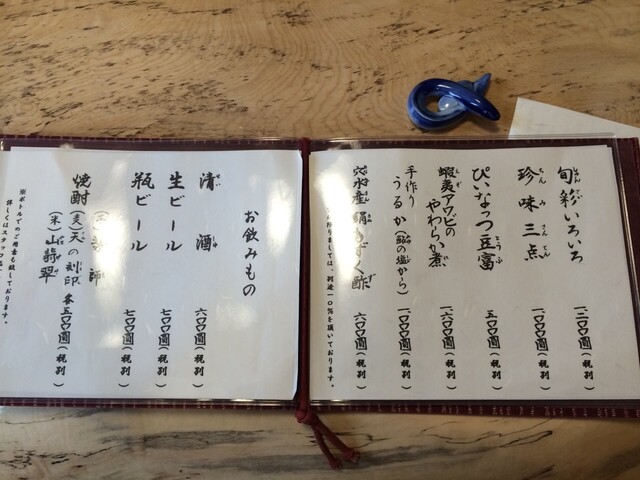 旬彩いろいろ 一、二〇〇圓(税別)
珍味三点 一、〇〇〇圓(税別)
ぴぃなっつ豆富 五〇〇圓(税別)
蝦夷アワビのやわらか煮 一、六〇〇圓(税別)
手作りうるか(鮎の塩から) 一、〇〇〇圓(税別)
穴水産絹もずく酢 六〇〇圓(税別)
別途一〇%を頂いております。
お飲みもの
清酒 六〇〇圓(税別)
生ビール 七〇〇圓(税別)
瓶ビール 七〇〇圓(税別)
焼酎
(麦)天の刻印 各五〇〇圓(税別)
(米)山翡翠
※ボトルでのご用意も致しております。
詳しくはスタッフ